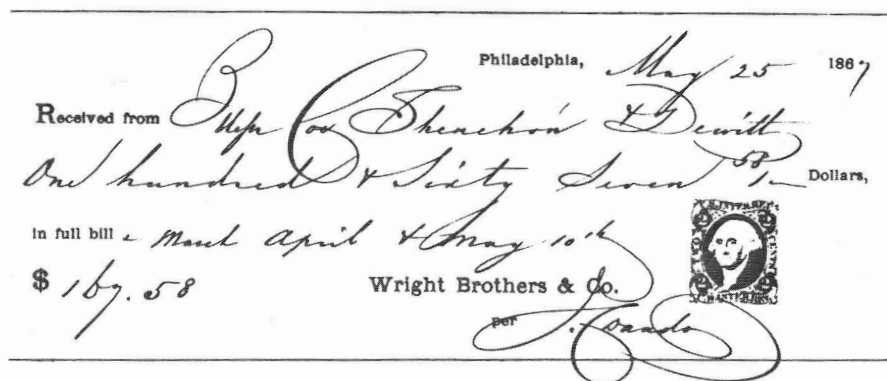 Philadelphia, May 25 1867
Received from Cox & Dewitt
One hundred & Sixty Seven 58 Dollars,
in full bill March April & May 10th
$ 167.58 Wright Brothers & Co.
per